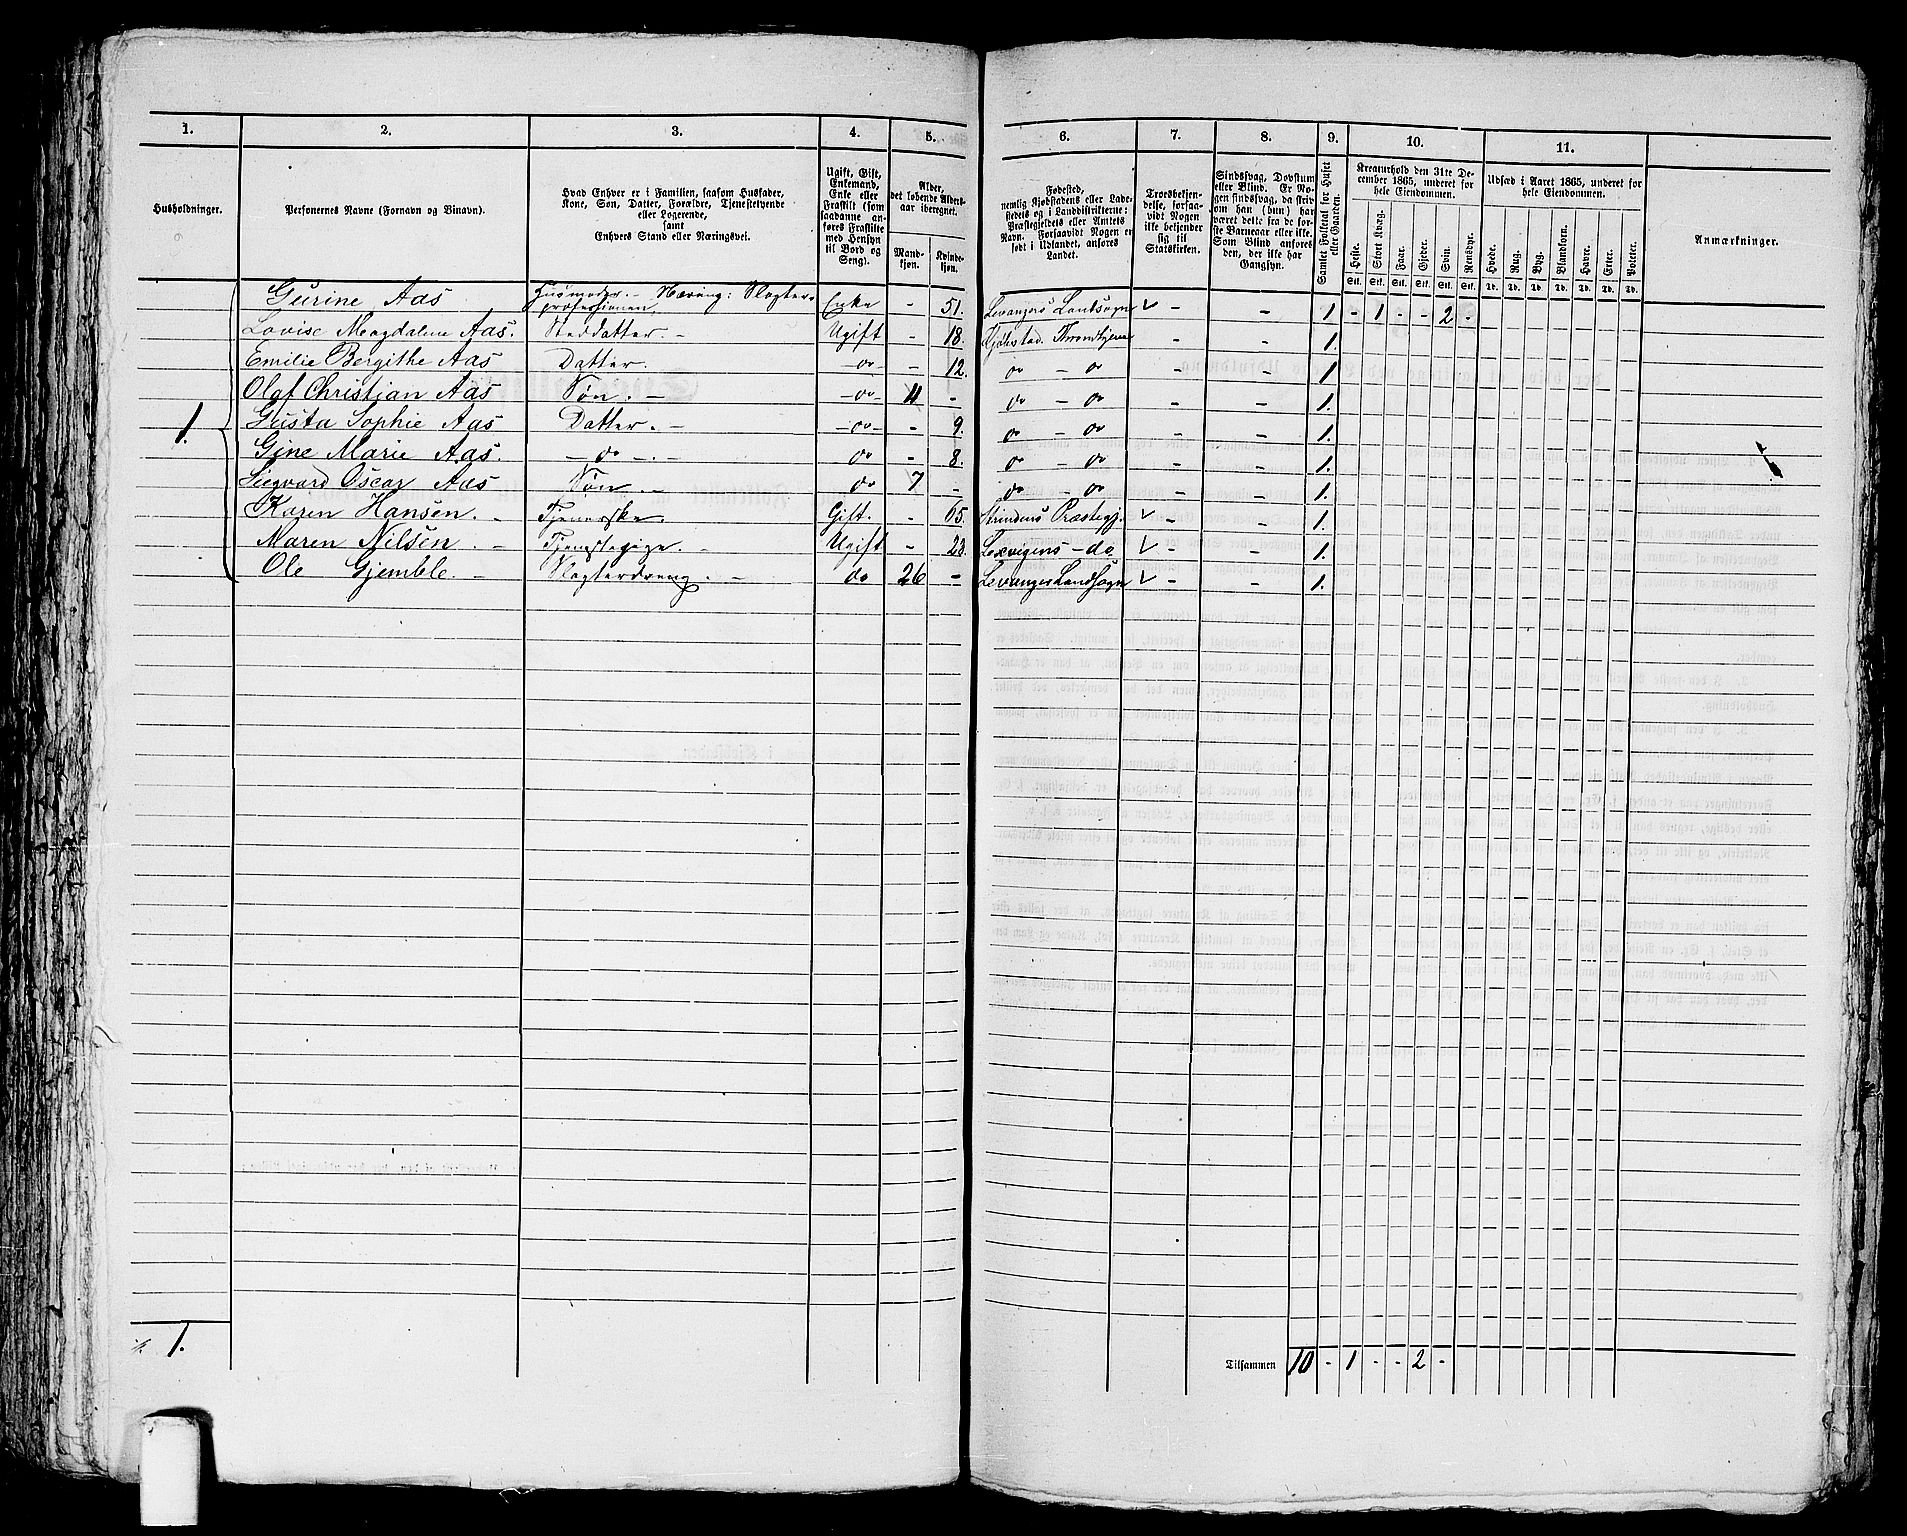 1. 2. 3. 4. 5. 6. 7. 8. 9. 10. 11.
Husholdninger.
Personernes Navne (Fornavn og Binavn).
Hvad Enhver er i Familien, saasom Husfader, Kone, Søn, Datter, Forældre, Tjenestetyende eller Logerende, samt Enhvers Stand eller Næringsvei.
Ugift, Gift, Enkemand, Enke eller Fraskilt (som saadanne anføres Fraskilte med Hensyn til Bord og Seng).
Alder, det løbende Aldersaar iberegnet.
Mandkjøn. Kvindekjøn.
Fødested, nemlig Kjøbstadens eller Ladestedets og i Landdistrikterne: Præstegjeldets eller Amtets Navn. Forsaavidt Nogen er født i Udlandet, anføres Landet.
Troesbekjendelse, forsaavidt Nogen ikke bekjender sig til Statskirken.
Sindssvag, Døvstum eller Blind. Er Nogen sindssvag, da skrives om han (hun) har været dette fra de første Barneaar eller ikke. Som Blind anføres den, der ikke har Gangsyn.
Samlet Folketal for Huset eller Gaarden.
Kreaturhold den 31te December 1865, underet for hele Eiendommen.
Heste. Stort Kvæg. Faar. Gjeder. Svin. Rensdyr.
Stk. Stk. Stk. Stk. Stk. Stk.
Udsæd i Aaret 1865, underet for hele Eiendommen.
Hvede. Rug. Byg. Blandkorn. Havre. Erter. Poteter.
Td. Td. Td. Td. Td. Td. Td.
Anmærkninger.
Gurine Aas Husmoder. - Næring: Slagterprofessionen. Enke - 51. Levangers Landsogn - - 1. - 1 - - 2 -
Lovise Magdalene Aas. Steddatter. - Ugift - 18. Kjøbstad. Throndhjem - - 1.
Emilie Bergithe Aas Datter. - do - - 12. do - do - - 1.
Olaf Christian Aas Søn. - - do - 11 - do - do - - 1.
1. Gusta Sophie Aas Datter. - - do - - 9. do - do - - 1.
Gine Marie Aas. - do - - do - 8. do - do - - 1.
Siegvard Oscar Aas Søn. - do 7 - do - do - - 1.
Karen Hansen. - Tjenerske. Gift. - 65. Strindens Præstegj. - - 1.
Maren Nilsen. - Tjenstepige. - Ugift - 23. Lexvigens - do - - 1.
Ole Gjemble. - Slagterdreng. - do 26 - Levanger Landsogn - - 1.
1. Tilsammen 10 - 1 - - 2 -